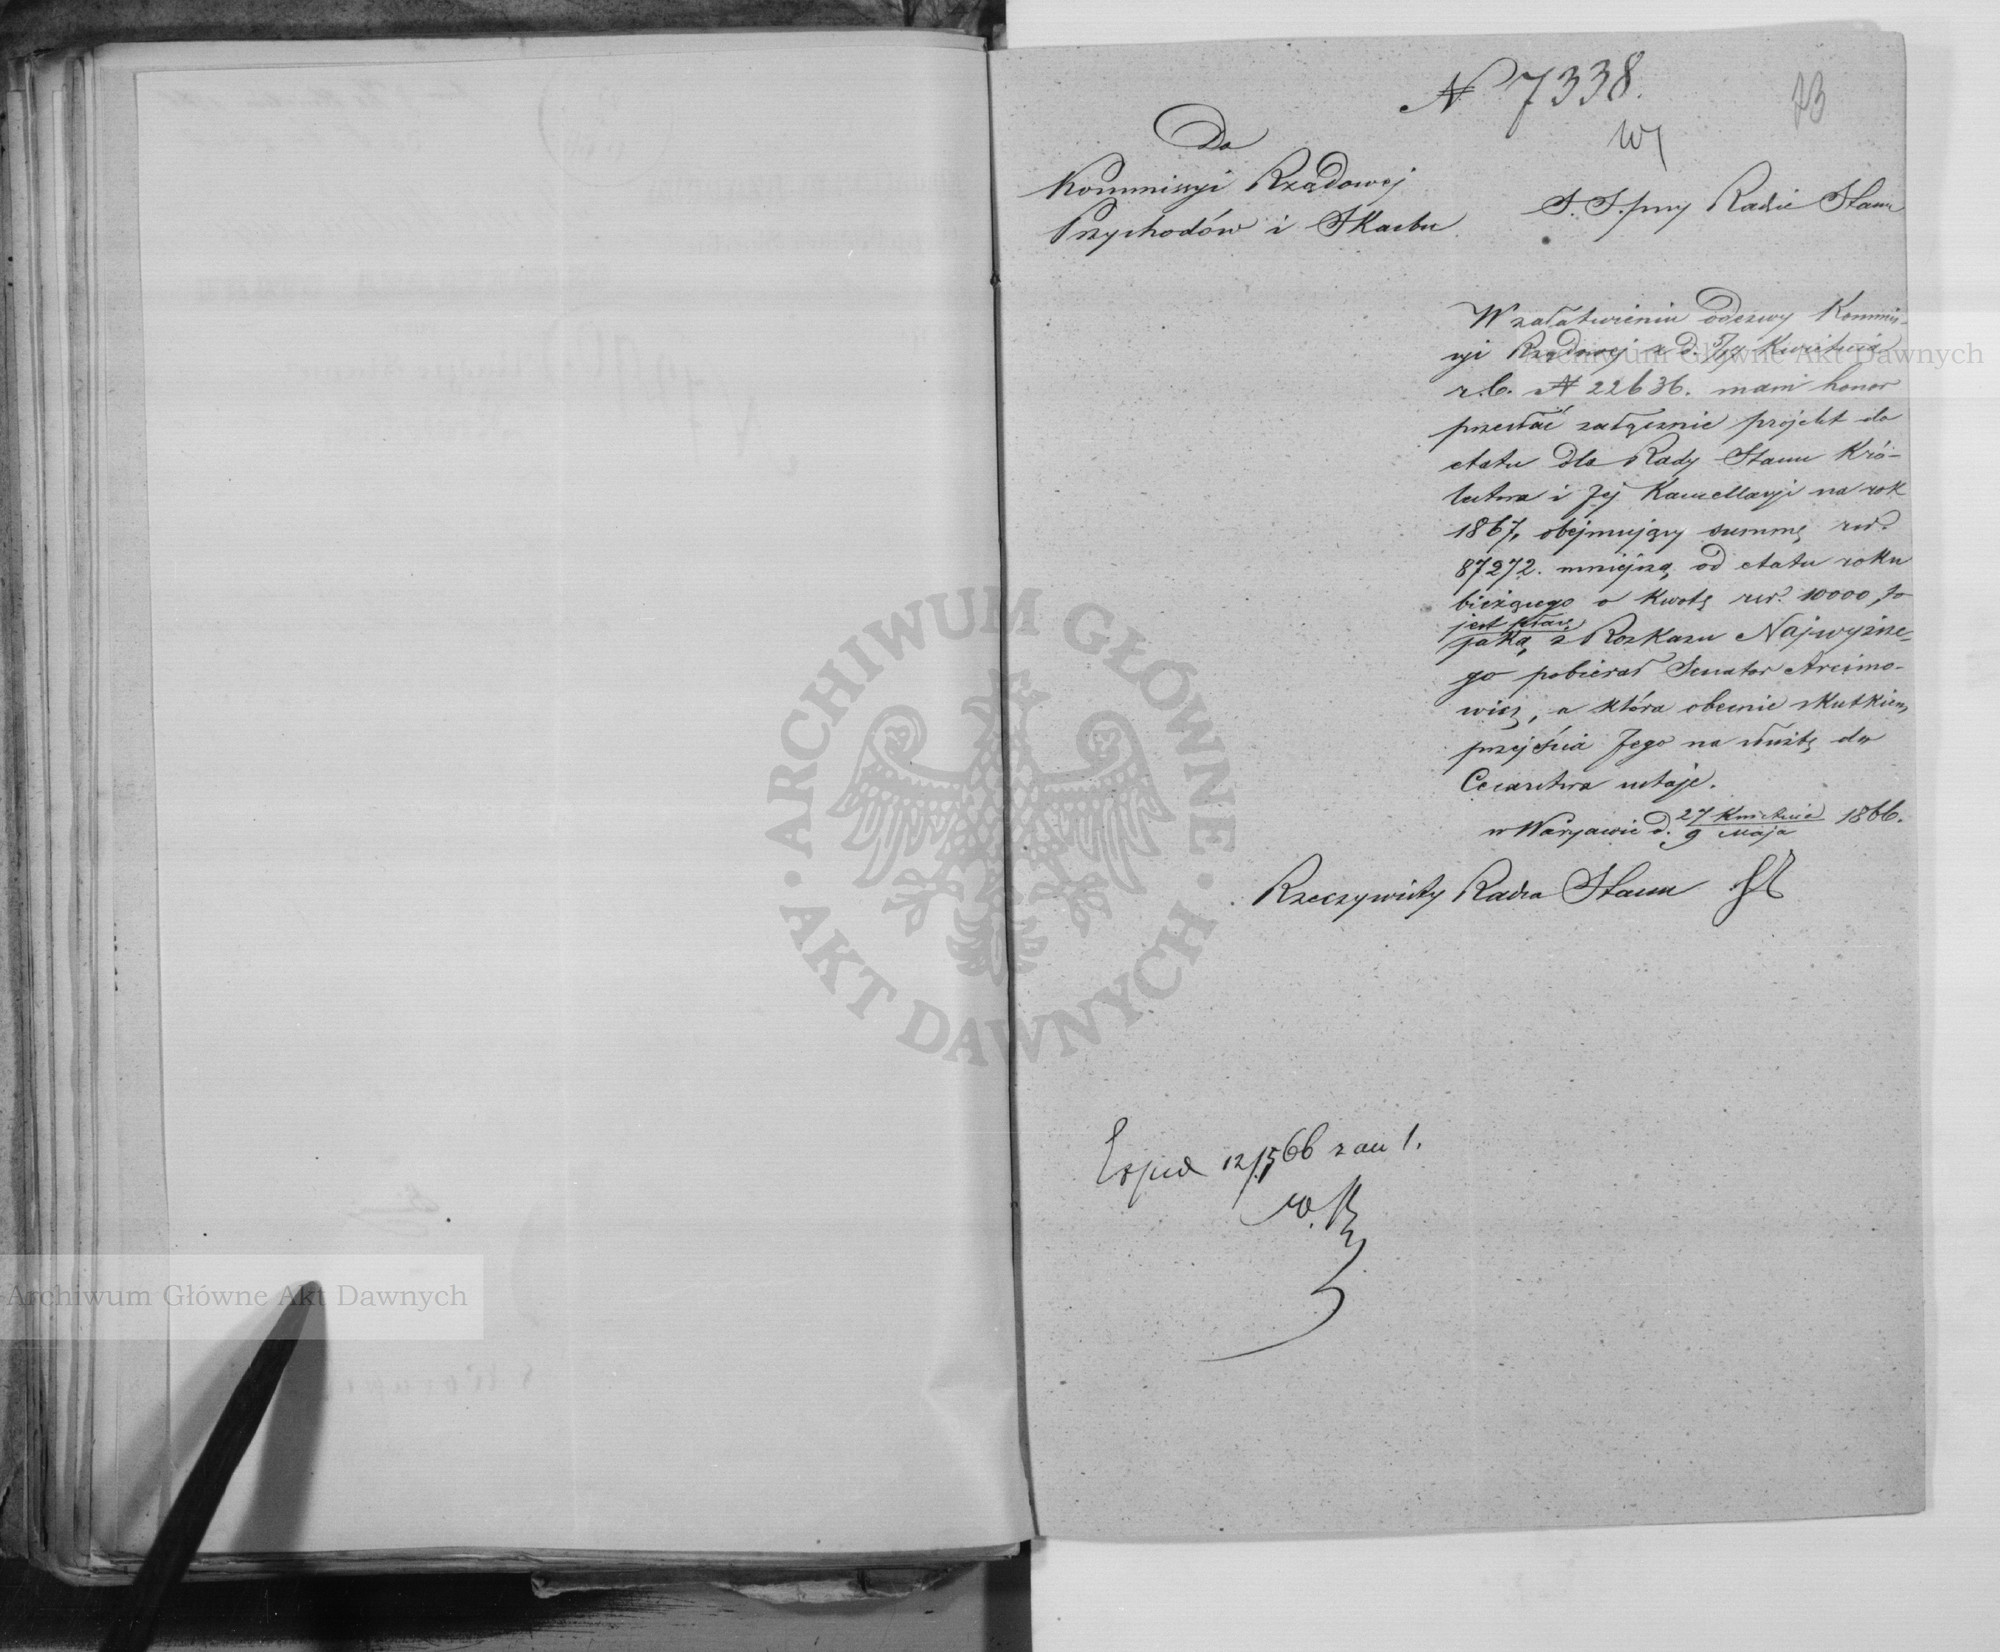 N 7338.
73
Do
Kommissyi Rządowej
Przychodów i Skarbu
S. S. przy Radzie Stanu
W załatwieniu odezwy Kommis-
syi Rządowej z d. Kwietnia
r. b. N 22636. mam honor
przesłać załącznie projekt do
etatu dla Rady Stanu Kró-
lestwa i Jej Kancellaryi na rok
1867, obejmujący summę rsr.
87272. mniejszą od etatu roku
bieżącego o kwotę rsr. 10000, to
jest płacę
jaką z Rozkazu Najwyższe-
go pobierał Senator Arcimo-
wicz, a która obecnie skutkiem
przejścia Jego na służbę do
Cesarstwa ustaje.
w Warszawie d. 27 Kwietnia / 9 Maja 1866.
Rzeczywisty Radca Stanu
Exped 12/5 66 z an 1.
ARCHIWUM GŁÓWNE
AKT DAWNYCH
Archiwum Główne Akt Dawnych
Archiwum Główne Akt Dawnych